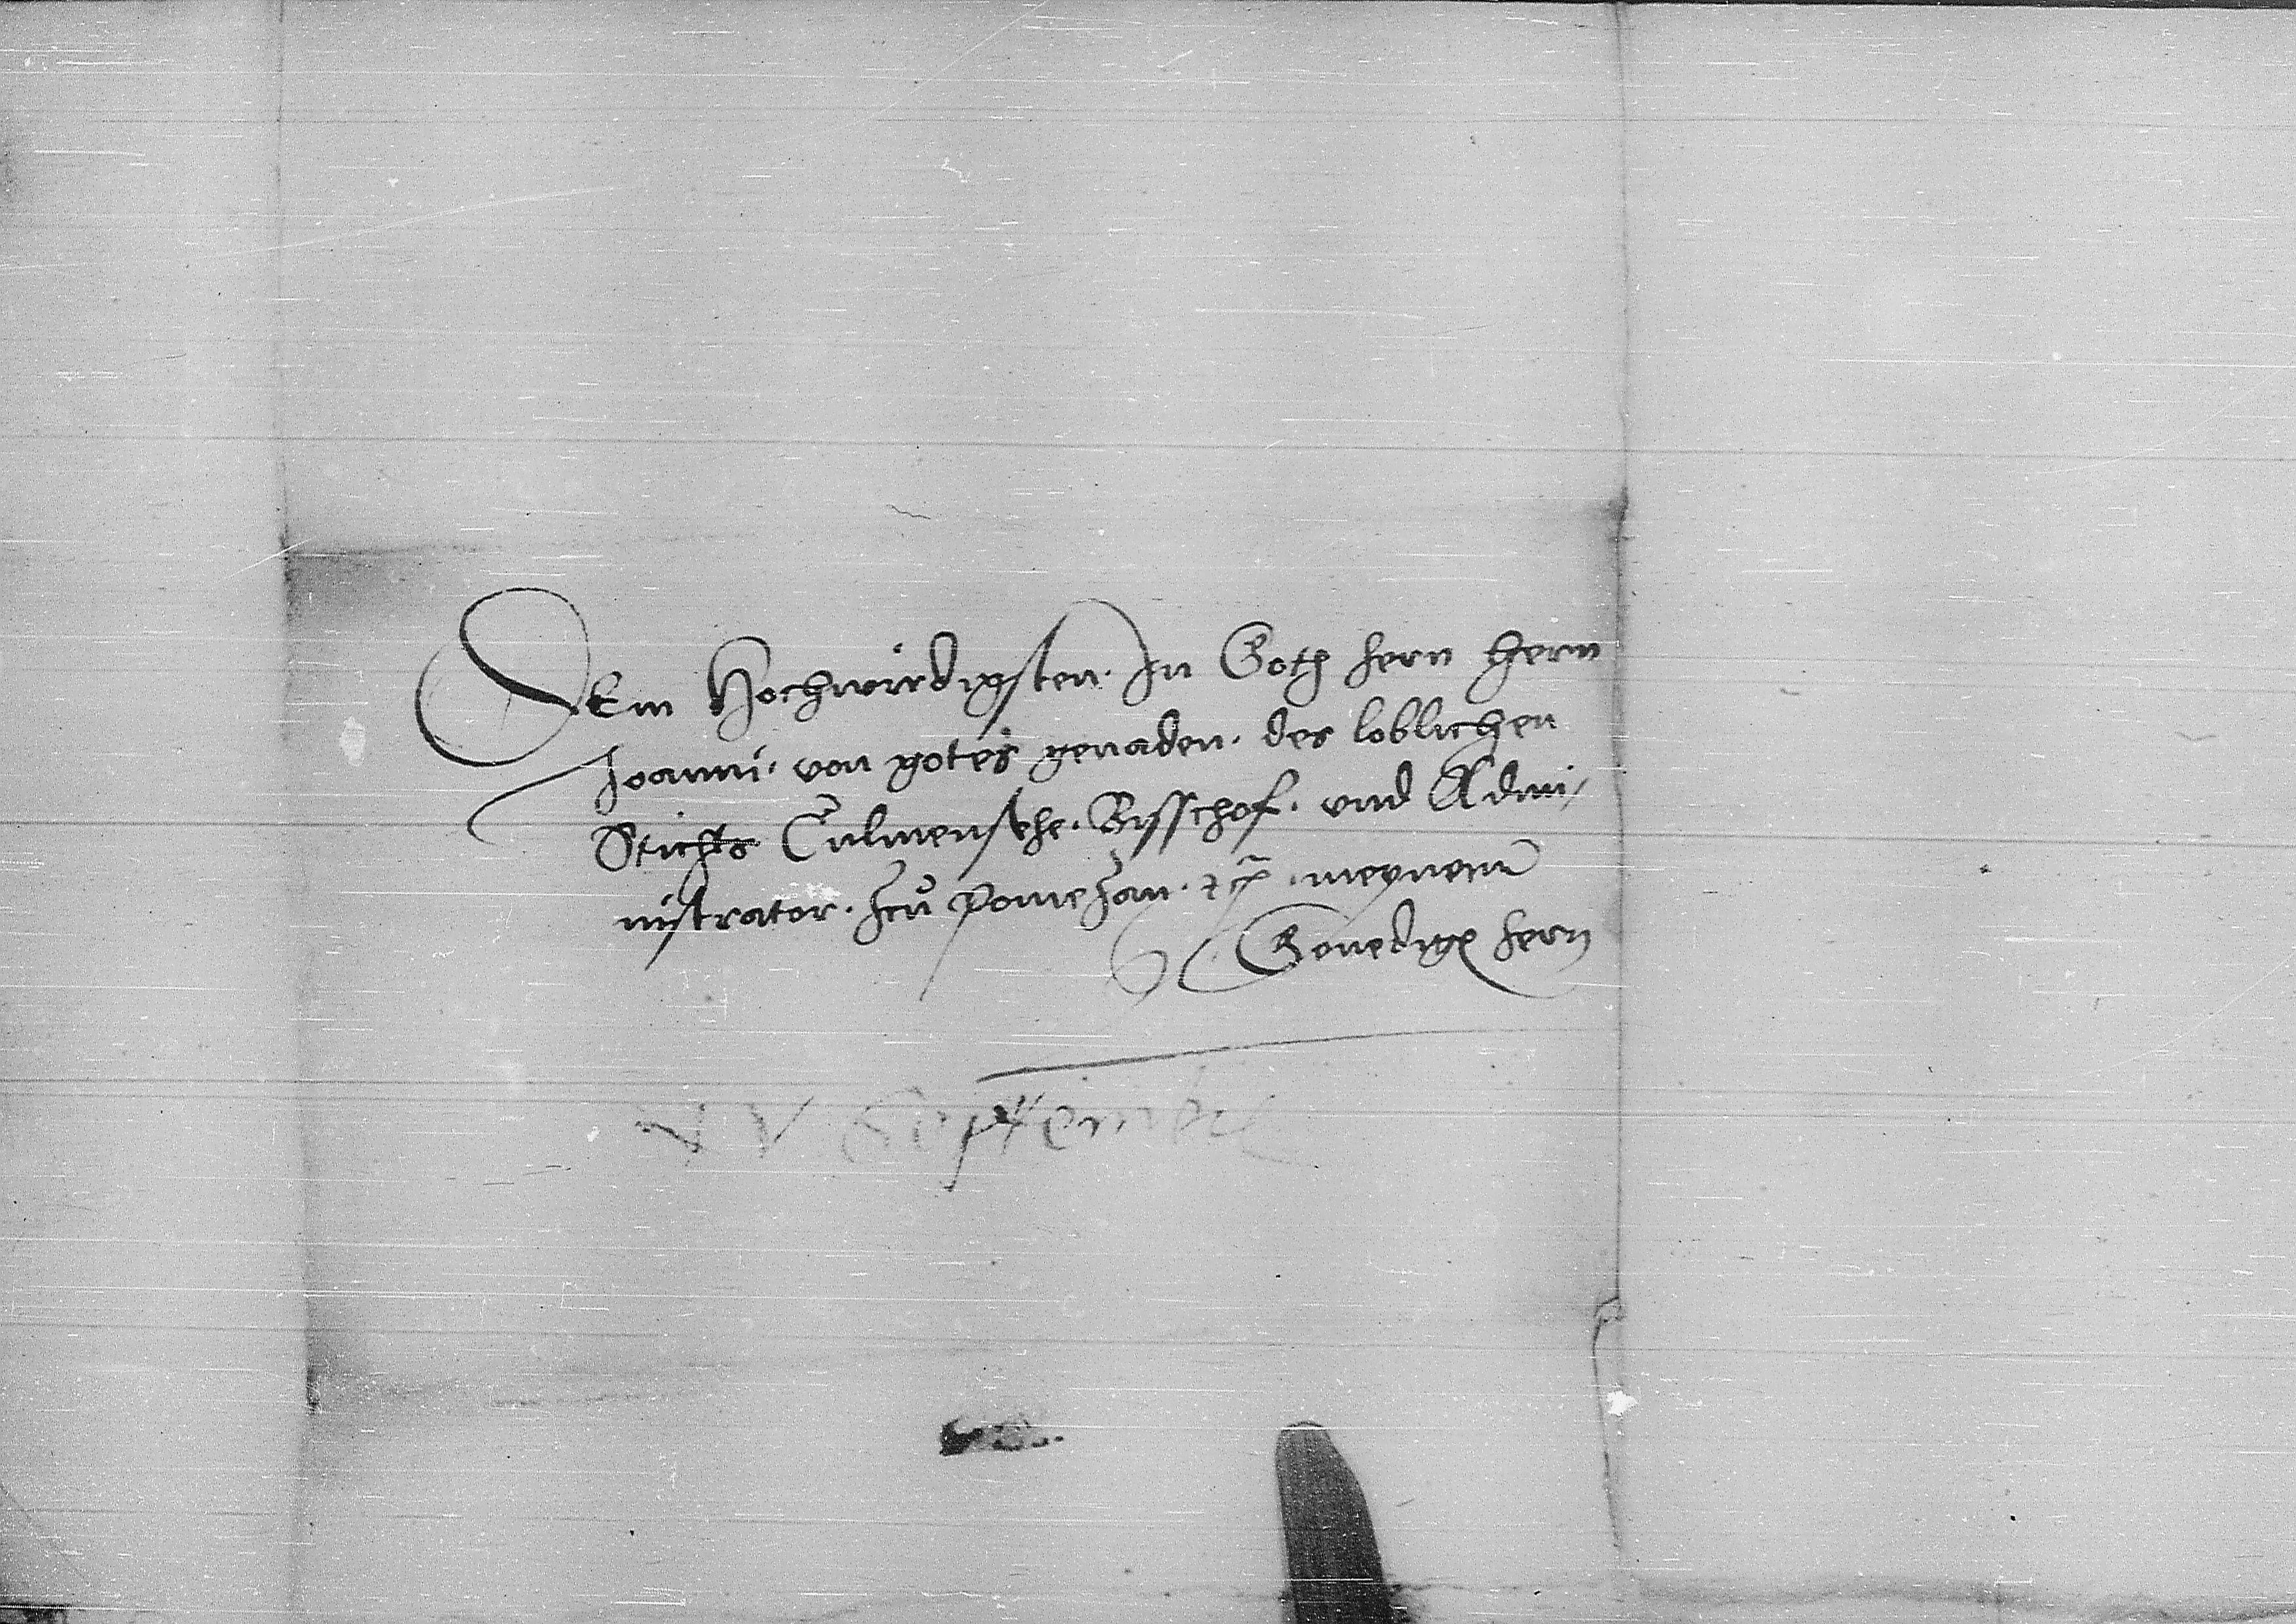 DEm Hochwirdigsten. In Goth hern Hern
Joanni. von gotes genaden. des loblichen
Stichts Culmensche. Bisschof. vnd Admi/
nistrator. zcu pomezan. etc. meynem
Genedigen hern
XV Septtembris